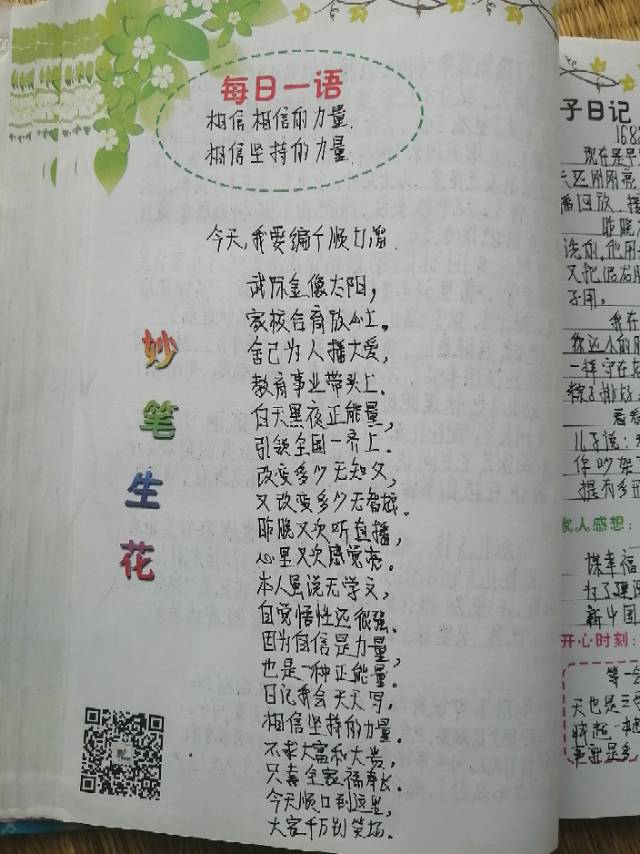 每日一语
相信相信的力量.
相信坚持的力量.
今天,我要编个顺口溜.
武际金像太阳,
家校合育放心上。
舍己为人播大爱,
教育事业带头上.
白天黑夜正能量,
引领全国一齐上.
改变多少无知父,
又改变多少无智娘.
昨晚又次听直播,
心里又次感觉亮。
本人虽说无学文,
自觉悟性还很强.
因为自信是力量,
也是一种正能量.
日记我会天天写,
相信坚持的力量.
不求大富和大贵,
只喜全家福寿长.
今天顺口到这里,
大家千万别笑场.
妙笔生花
子日记
168
现在是早
天还刚刚亮
播回放
昨晚
洗
又把
子用.
我在
你这
一样守在
粽子排
看
儿子说:
你吵架
提有多
家人感想:
幸福
为了
新中国
开心时刻:
等一
天也是三